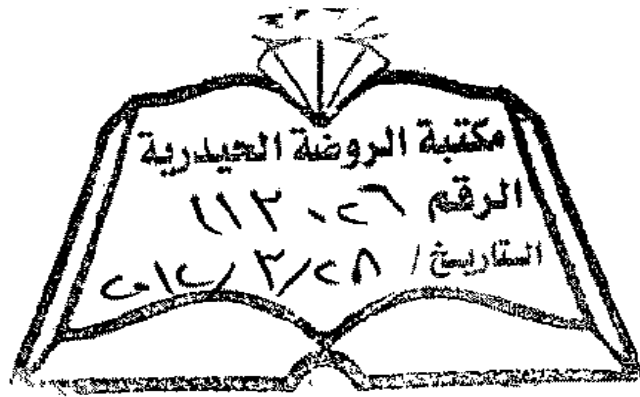 مكتبة الروضة الحيدرية
الرقم ١١٣٠٢٦
التاريخ / ٢٠١٢/٣/٢٨